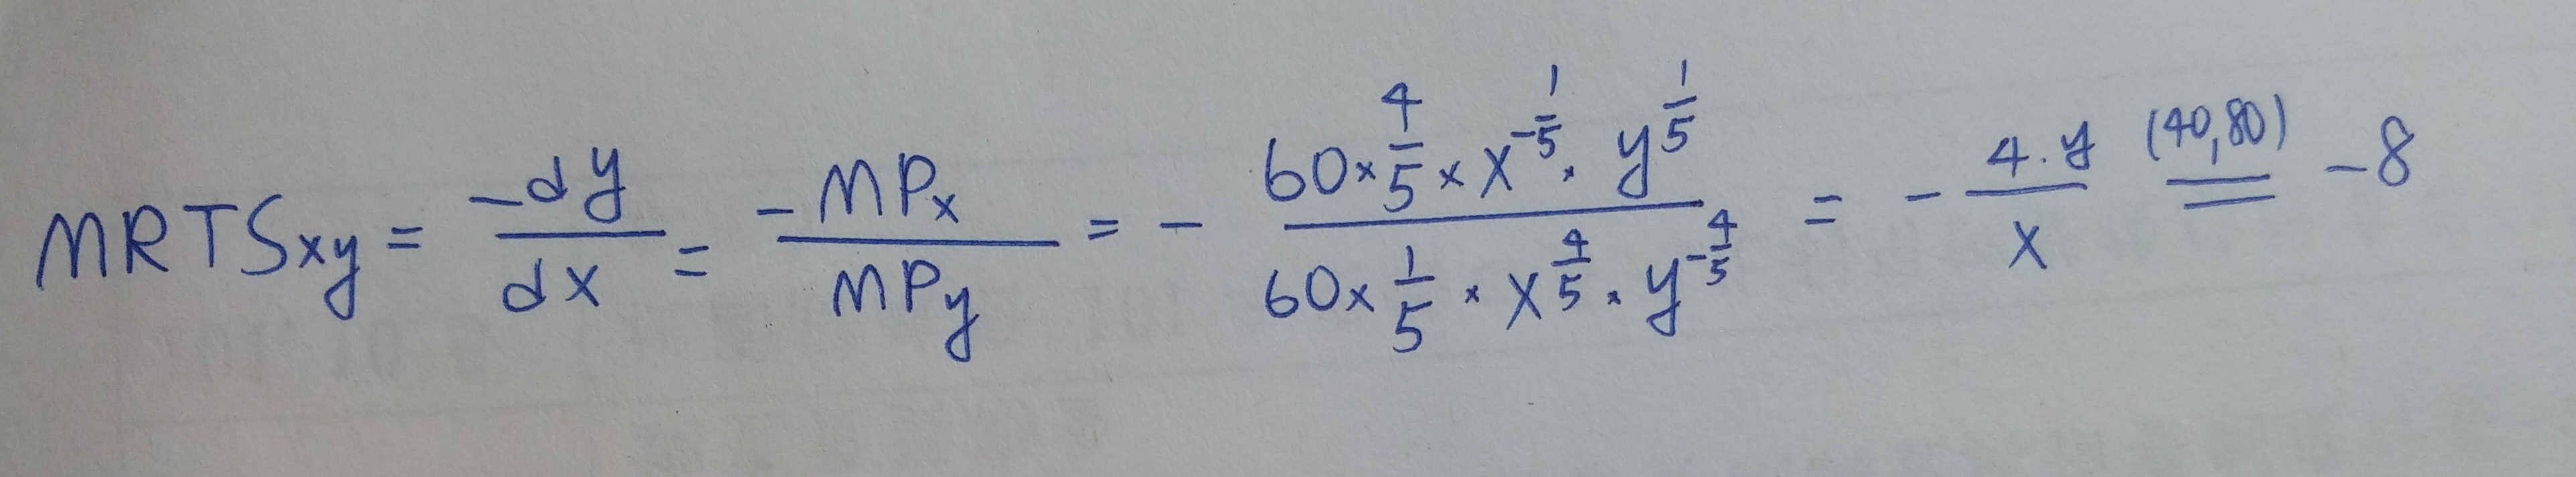 MRTSxy = -dy/dx = -MPx/MPy = - (60×4/5×x^(-1/5)·y^(1/5))/(60×1/5×x^(4/5)·y^(-4/5)) = - 4·y/x (40,80) = -8